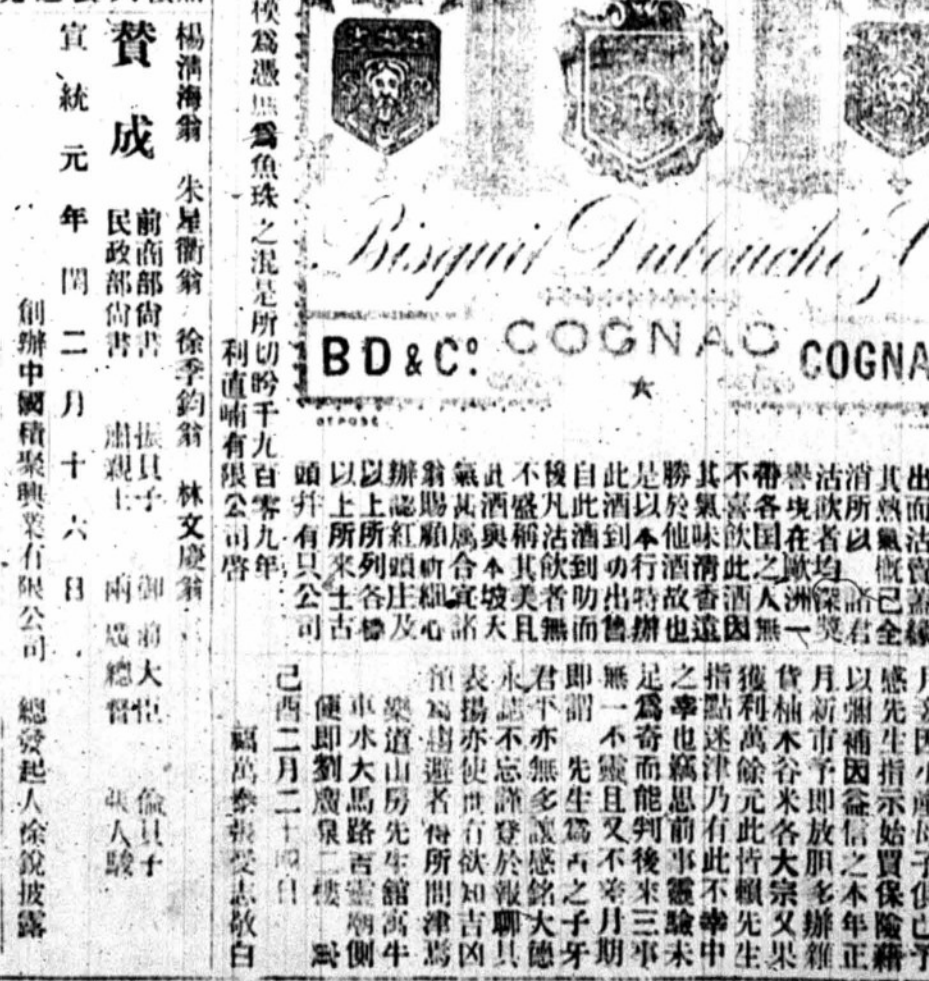 Bisquit Dubouché &
BD & Cº.
COGNAC
COGNA
DEPOSE
出而沽賣蓋緣
其熱氣慨已全
消所以諸君
沽飲者均深獎
譽現在歐洲一
帶各国之人無
不喜飲此酒因
其氣味清香遠
勝於他酒故也
是以本行特辦
此酒到叻出售
自此酒到叻而
後凡沽飲者無
不盛稱其美且
此酒與本坡天
氣甚属合宜諸
翁賜顧祈楓心
辦認紅頭庄及
以上所列各標
以上所來士古
頭并有只公司
為憑無為魚珠之混是所切盼千九百零九年
利直喃有限公司啓
感先生指示始買保險藉
以彌補因益信之本年正
月新市予即放胆多辦雜
貨柚木谷米各大宗又果
獲利萬餘元此皆賴先生
指點迷津乃有此不幸中
之幸也竊思前事靈驗未
足爲奇而能判後來三事
無一不靈且又不差月期
即謂 先生爲古之子牙
君平亦無多讓感銘大德
永誌不忘謹登於報聊具
表揚亦使世有欲知吉凶
預爲趨避者得所問津焉
樂道山房先生舘寓牛
車水大馬路吉靈廟側
便即劉廣泉二樓
己酉二月二十四日
福萬泰張受志敬白
楊清海翁 朱星衢翁 徐季鈞翁 林文慶翁
贊成
前商部尙書 振貝子 御前大臣 倫貝子
民政部尙書 肅親王 兩廣總督 張人駿
宣統元年閏二月十六日
創辦中國積聚興業有限公司 總發起人徐銳披露